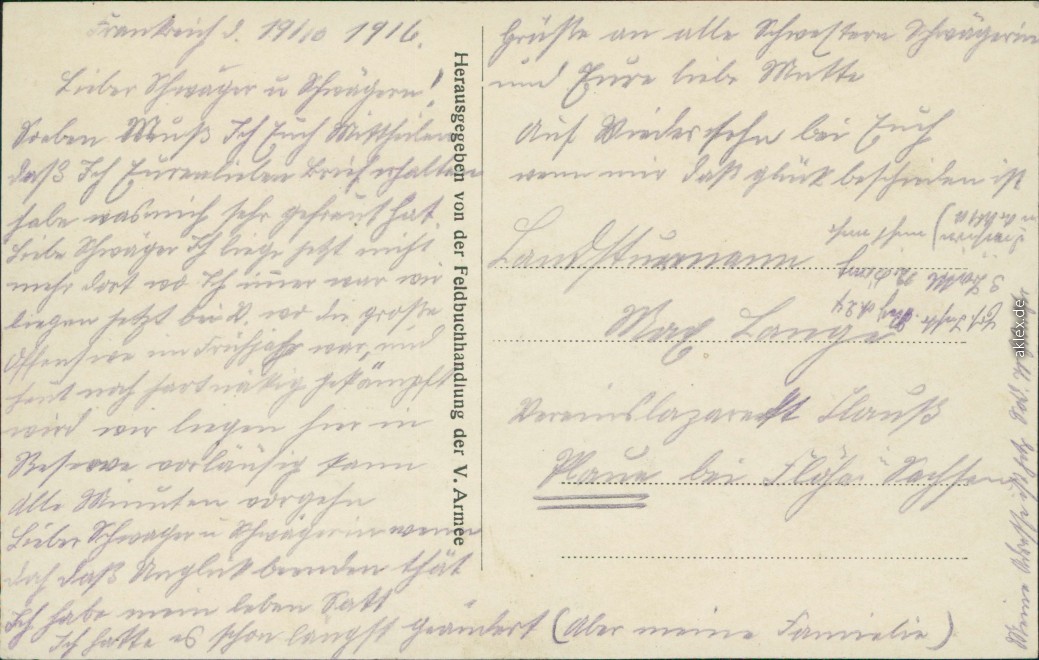 Frankreich d. 19/10 1916.
Lieber Schwager u Schwägern!
Soeben Muß Ich Euch Mittheilen
daß Ich Eurenlieben Brief erhalten
habe was mich sehr gefreut hat.
Liebe Schwager Ich liege jetzt nicht
mehr dort wo Ich immer war wir
liegen jetzt bei V. wo die große
Offensive im Frühjahr war, und
heut noch hartnäkig gekämpft
wird wir liegen hier in
Reserve vorläufig kann
Alle Minuten vorgehn
Lieber Schwager u Schwägerin wenn
doch daß Unglük beenden thät
Ich habe mein leben Satt
Ich hätte es schon längst geändert (Aber meine Familie)
Herausgegeben von der Feldbuchhandlung der V. Armee
Grüße an alle Schwestern Schwägerin
und Eure liebe Mutte
Auf Wiedersehn bei Euch
wenn mir daß glük beschieden ist
Landsturmann
Max Lange
Vereinslazarett
Plaue bei Flöha Sachsen
aklex.de